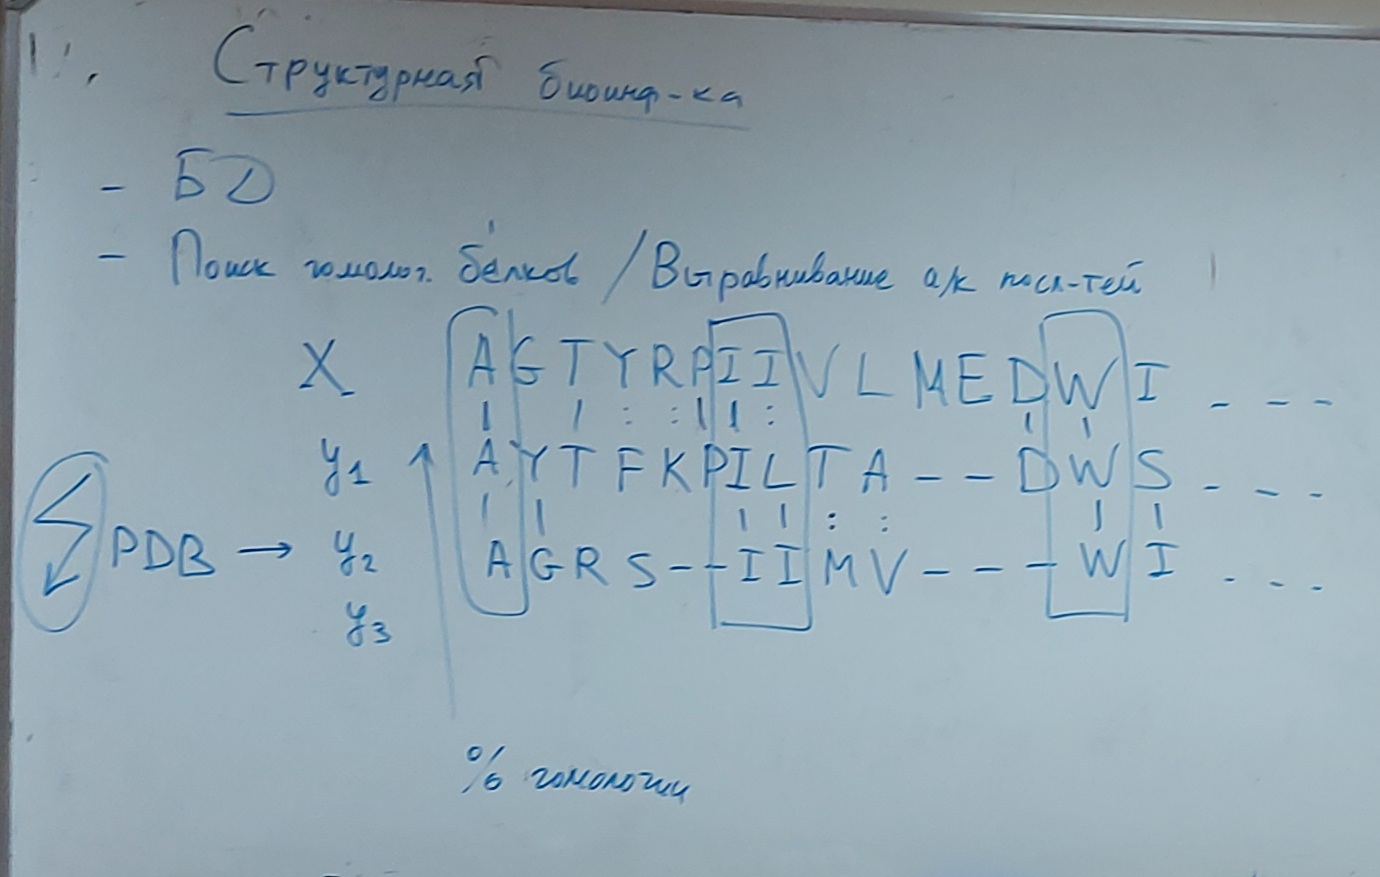 Структурная биоинф-ка
- БД
- Поиск гомолог. белков / Выравнивание а/к посл-тей
X A G T Y R P I I V L M E D W I - - -
| | : : | | : | |
y1 A Y T F K P I L T A - - D W S - - -
| | | | : : | |
PDB → y2 A G R S - - I I M V - - - W I - - -
y3
% гомологии